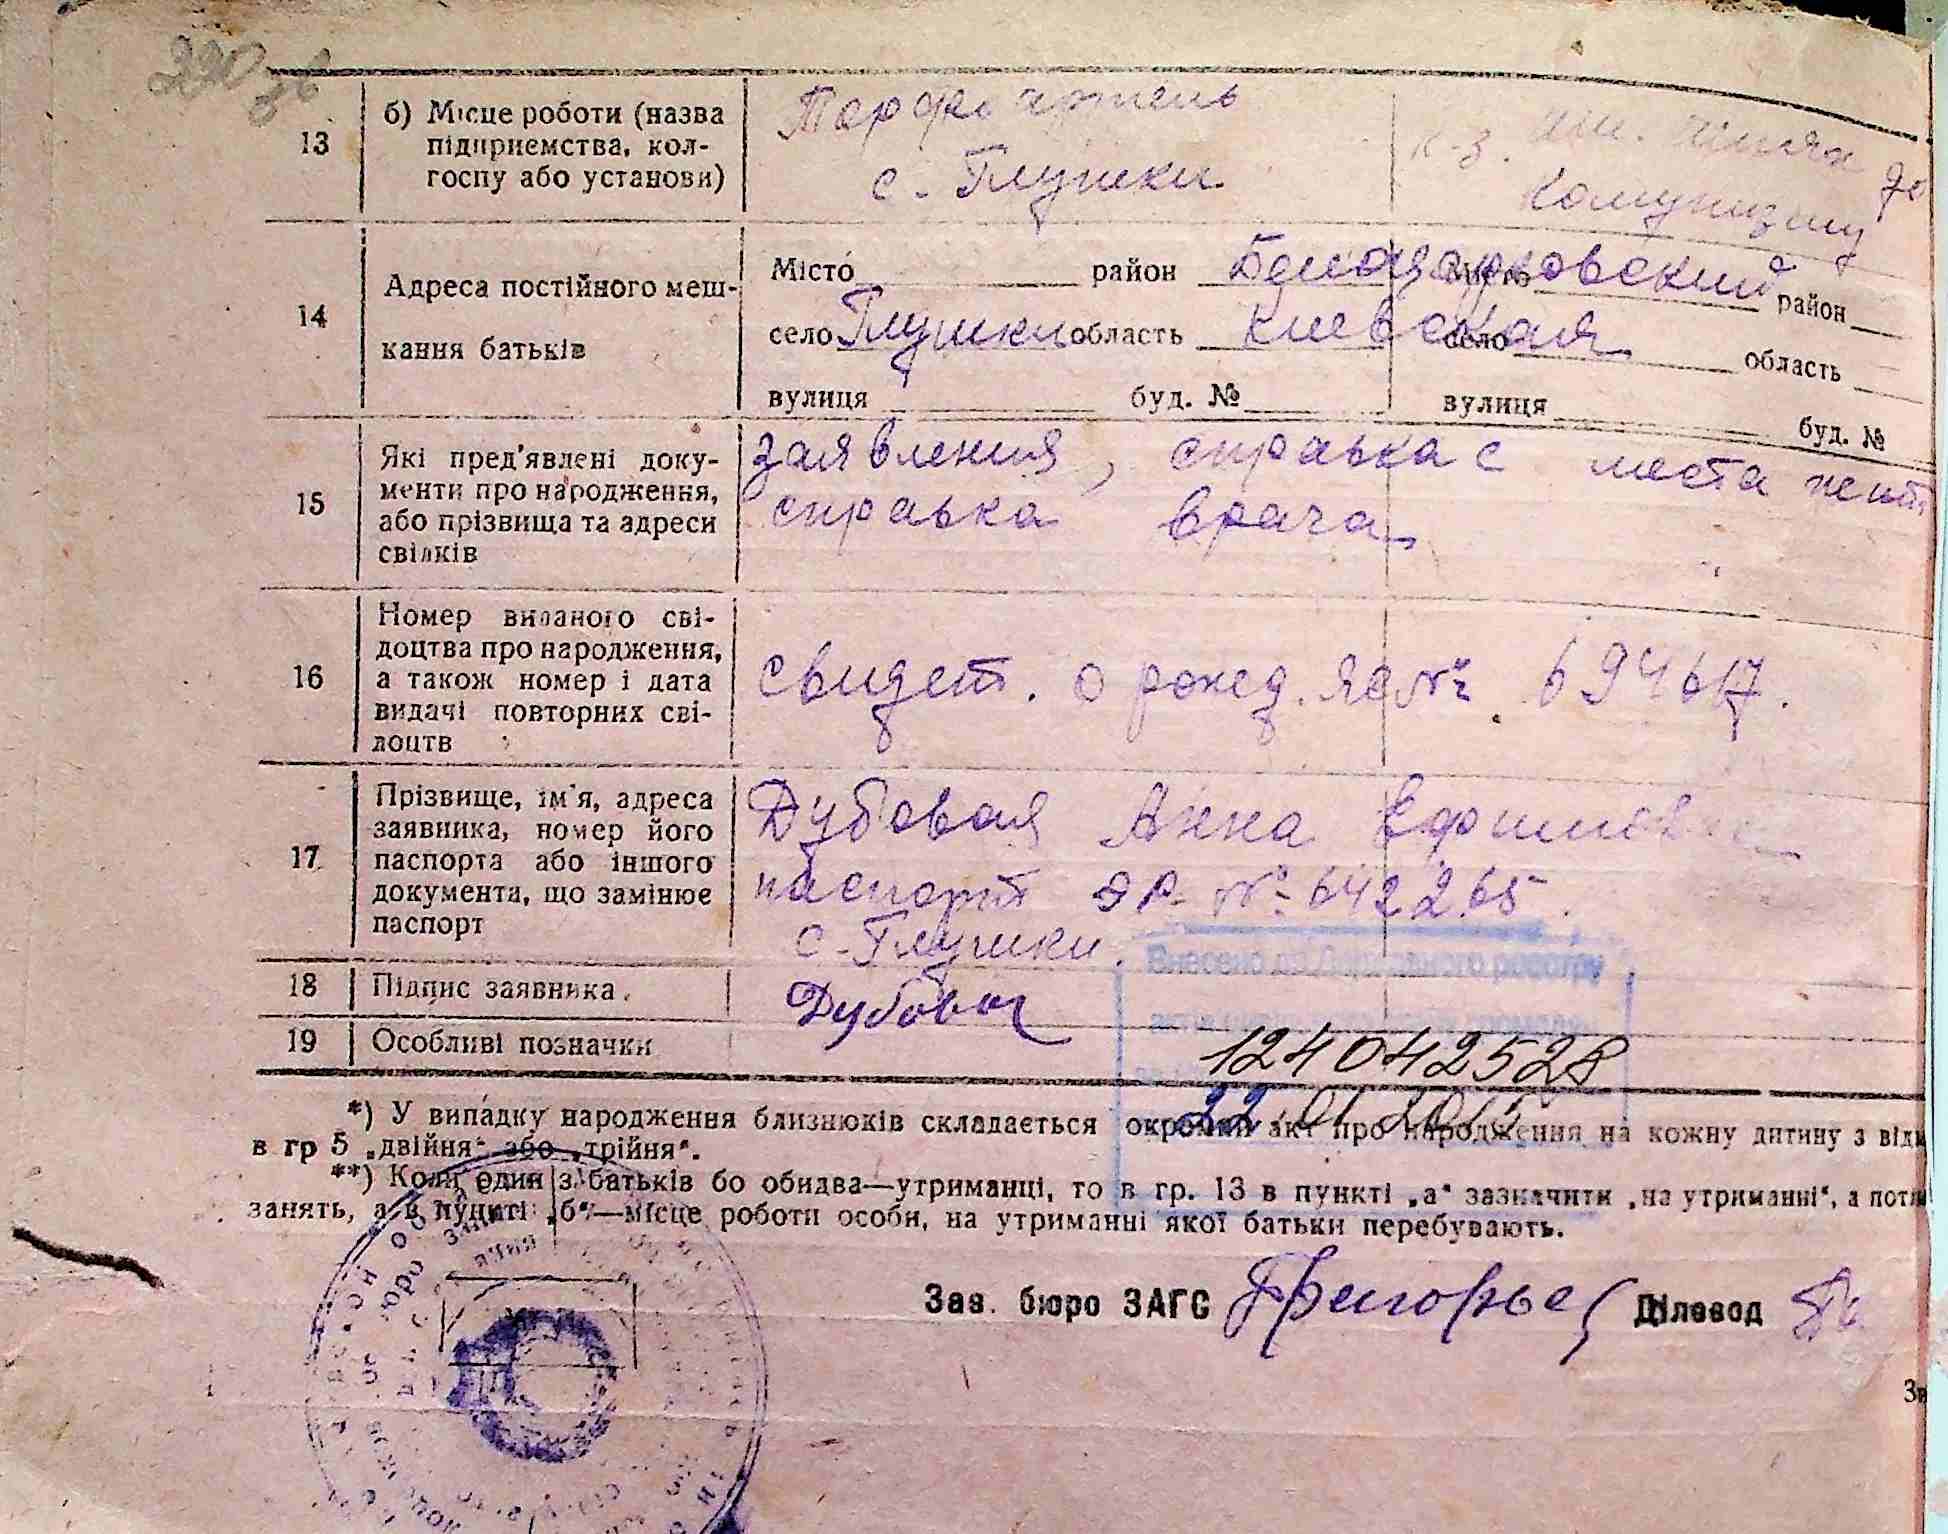 13
б) Місце роботи (назва
підприємства, кол-
госпу або установи)
Торфо артель
с-Глушки
к-з. им. Шлях до
Комунизму
14
Адреса постійного меш-
кання батьків
Місто район Белоцерковский Місто район
село Глушки область Киевская село область
вулиця буд. № вулиця буд. №
15
Які пред'явлені доку-
менти про народження,
або прізвища та адреси
свідків
заявления, справка с места жит
справка врача
16
Номер виданого сві-
доцтва про народження,
а також номер і дата
видачі повторних сві-
доцтв
свидет. о рожд. ЯС № 694617.
17
Прізвище, ім'я, адреса
заявника, номер його
паспорта або іншого
документа, що замінює
паспорт
Дубовая Анна Ефимовна
паспорт № 642265
с-Глушки.
18 Підпис заявника.
Дубовая
Внесено до Державного реєстру
актів цивільного стану громадян
19 Особливі позначки
124042528
22 01 2015
*) У випадку народження близнюків складається окремий акт про народження на кожну дитину з відм
в гр 5 „двійня“ або „трійня“.
**) Коли один з батьків бо обидва—утриманці, то в гр. 13 в пункті „а“ зазначити „на утриманні“, а потім
занять, а в пункті „б“—місце роботи особи, на утриманні якої батьки перебувають.
Зав. бюро ЗАГС Григорьев Діловод